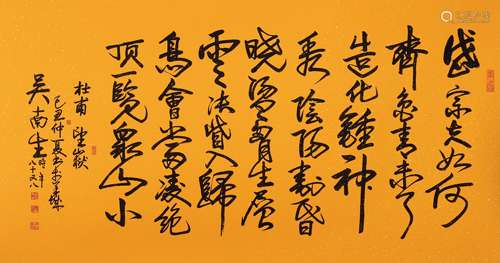 岱宗夫如何
齊魯青未了
造化鍾神
秀陰陽割昏
曉盪胸生層
雲決眥入歸
鳥會當凌絕
頂一覽衆山小
杜甫 望嶽
己丑仲夏书於羊城
吴南生 时年八十又八